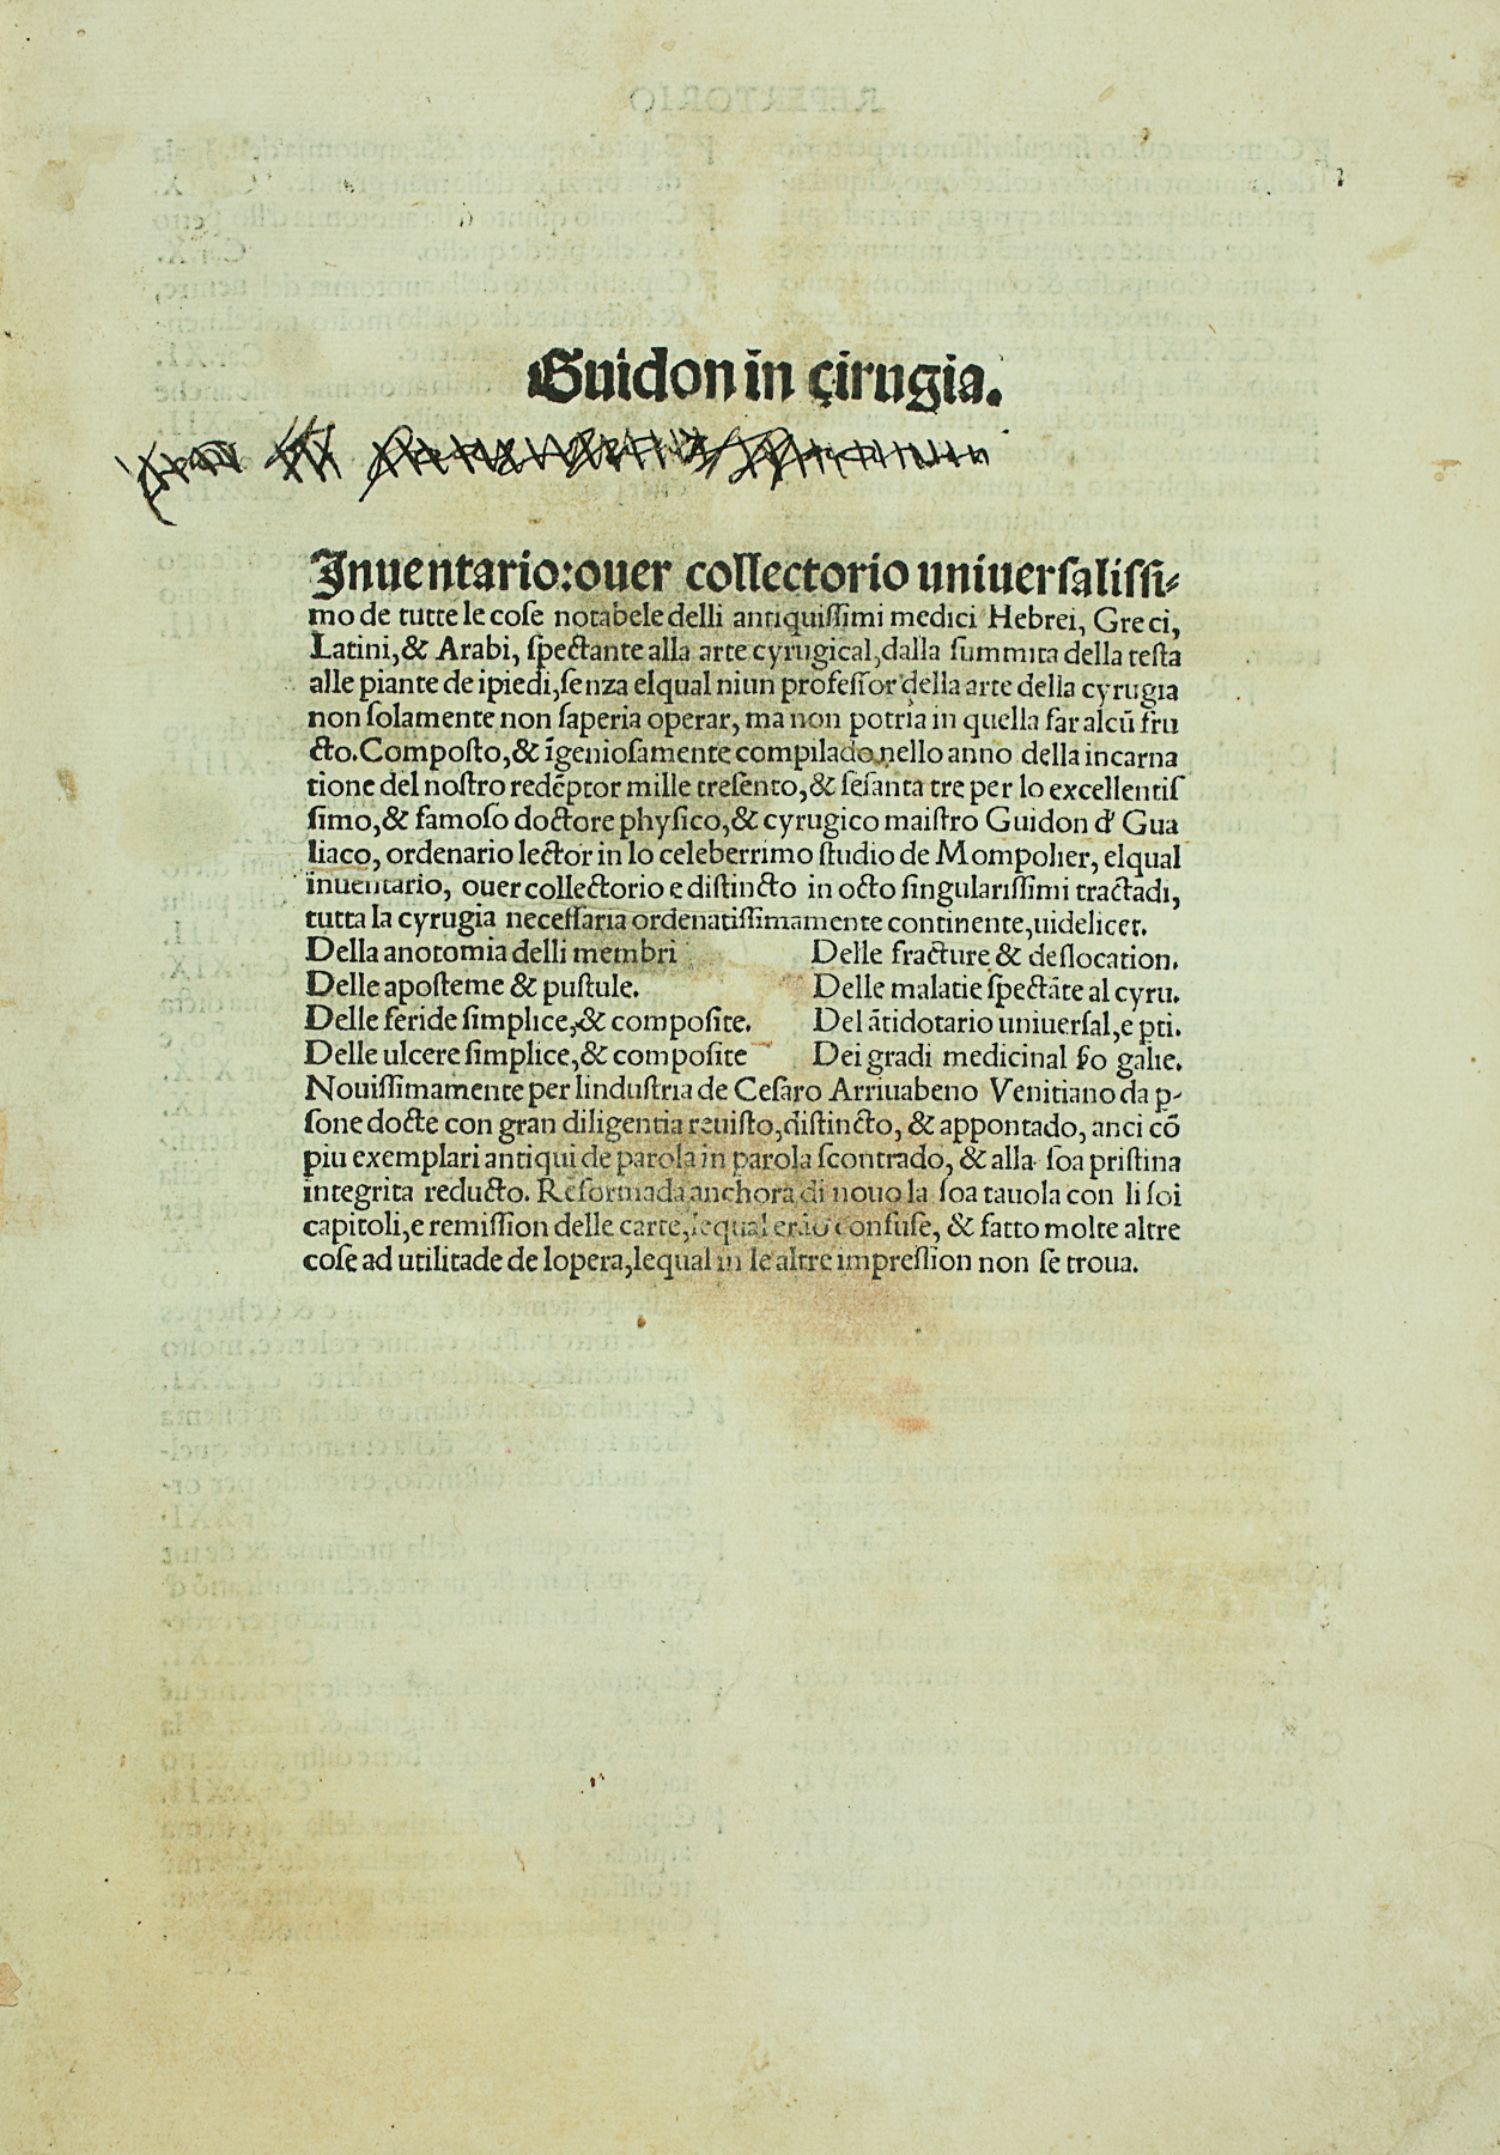 Guidon in çirugia.
Inuentario:ouer collectorio uniuerſaliſſi-
mo de tutte le coſe notabele delli antiquiſſimi medici Hebrei, Greci,
Latini,& Arabi, ſpectante alla arte cyrugical,dalla ſummita della teſta
alle piante de ipiedi,ſenza elqual niun profeſſor della arte della cyrugia
non ſolamente non ſaperia operar, ma non potria in quella far alcū fru
cto.Compoſto,& īgenioſamente compilado nello anno della incarna
tione del noſtro redēptor mille treſento,& ſeſanta tre per lo excellentiſ
ſimo,& famoſo doctore phyſico,& cyrugico maiſtro Guidon d' Gua
liaco, ordenario lector in lo celeberrimo ſtudio de Mompolier, elqual
inuentario, ouer collectorio e diſtincto in octo ſingulariſſimi tractadi,
tutta la cyrugia neceſſaria ordenatiſſimamente continente,uidelicet.
Della anotomia delli membri
Delle apoſteme & puſtule.
Delle feride ſimplice,& compoſite.
Delle ulcere ſimplice,& compoſite
Delle fracture & deſlocation.
Delle malatie ſpectāte al cyru.
Del ātidotario uniuerſal,e pti.
Dei gradi medicinal ſo galie.
Nouiſſimamente per linduſtria de Ceſaro Arriuabeno Venitiano da p-
ſone docte con gran diligentia reuiſto,diſtincto, & appontado, anci cō
piu exemplari antiqui de parola in parola ſcontrado, & alla ſoa priſtina
integrita reducto. Reformada anchora di nouo la ſoa tauola con li ſoi
capitoli,e remiſſion delle carte,lequal erāo confuſe, & fatto molte altre
coſe ad utilitade de lopera,lequal in le altre impreſſion non ſe troua.